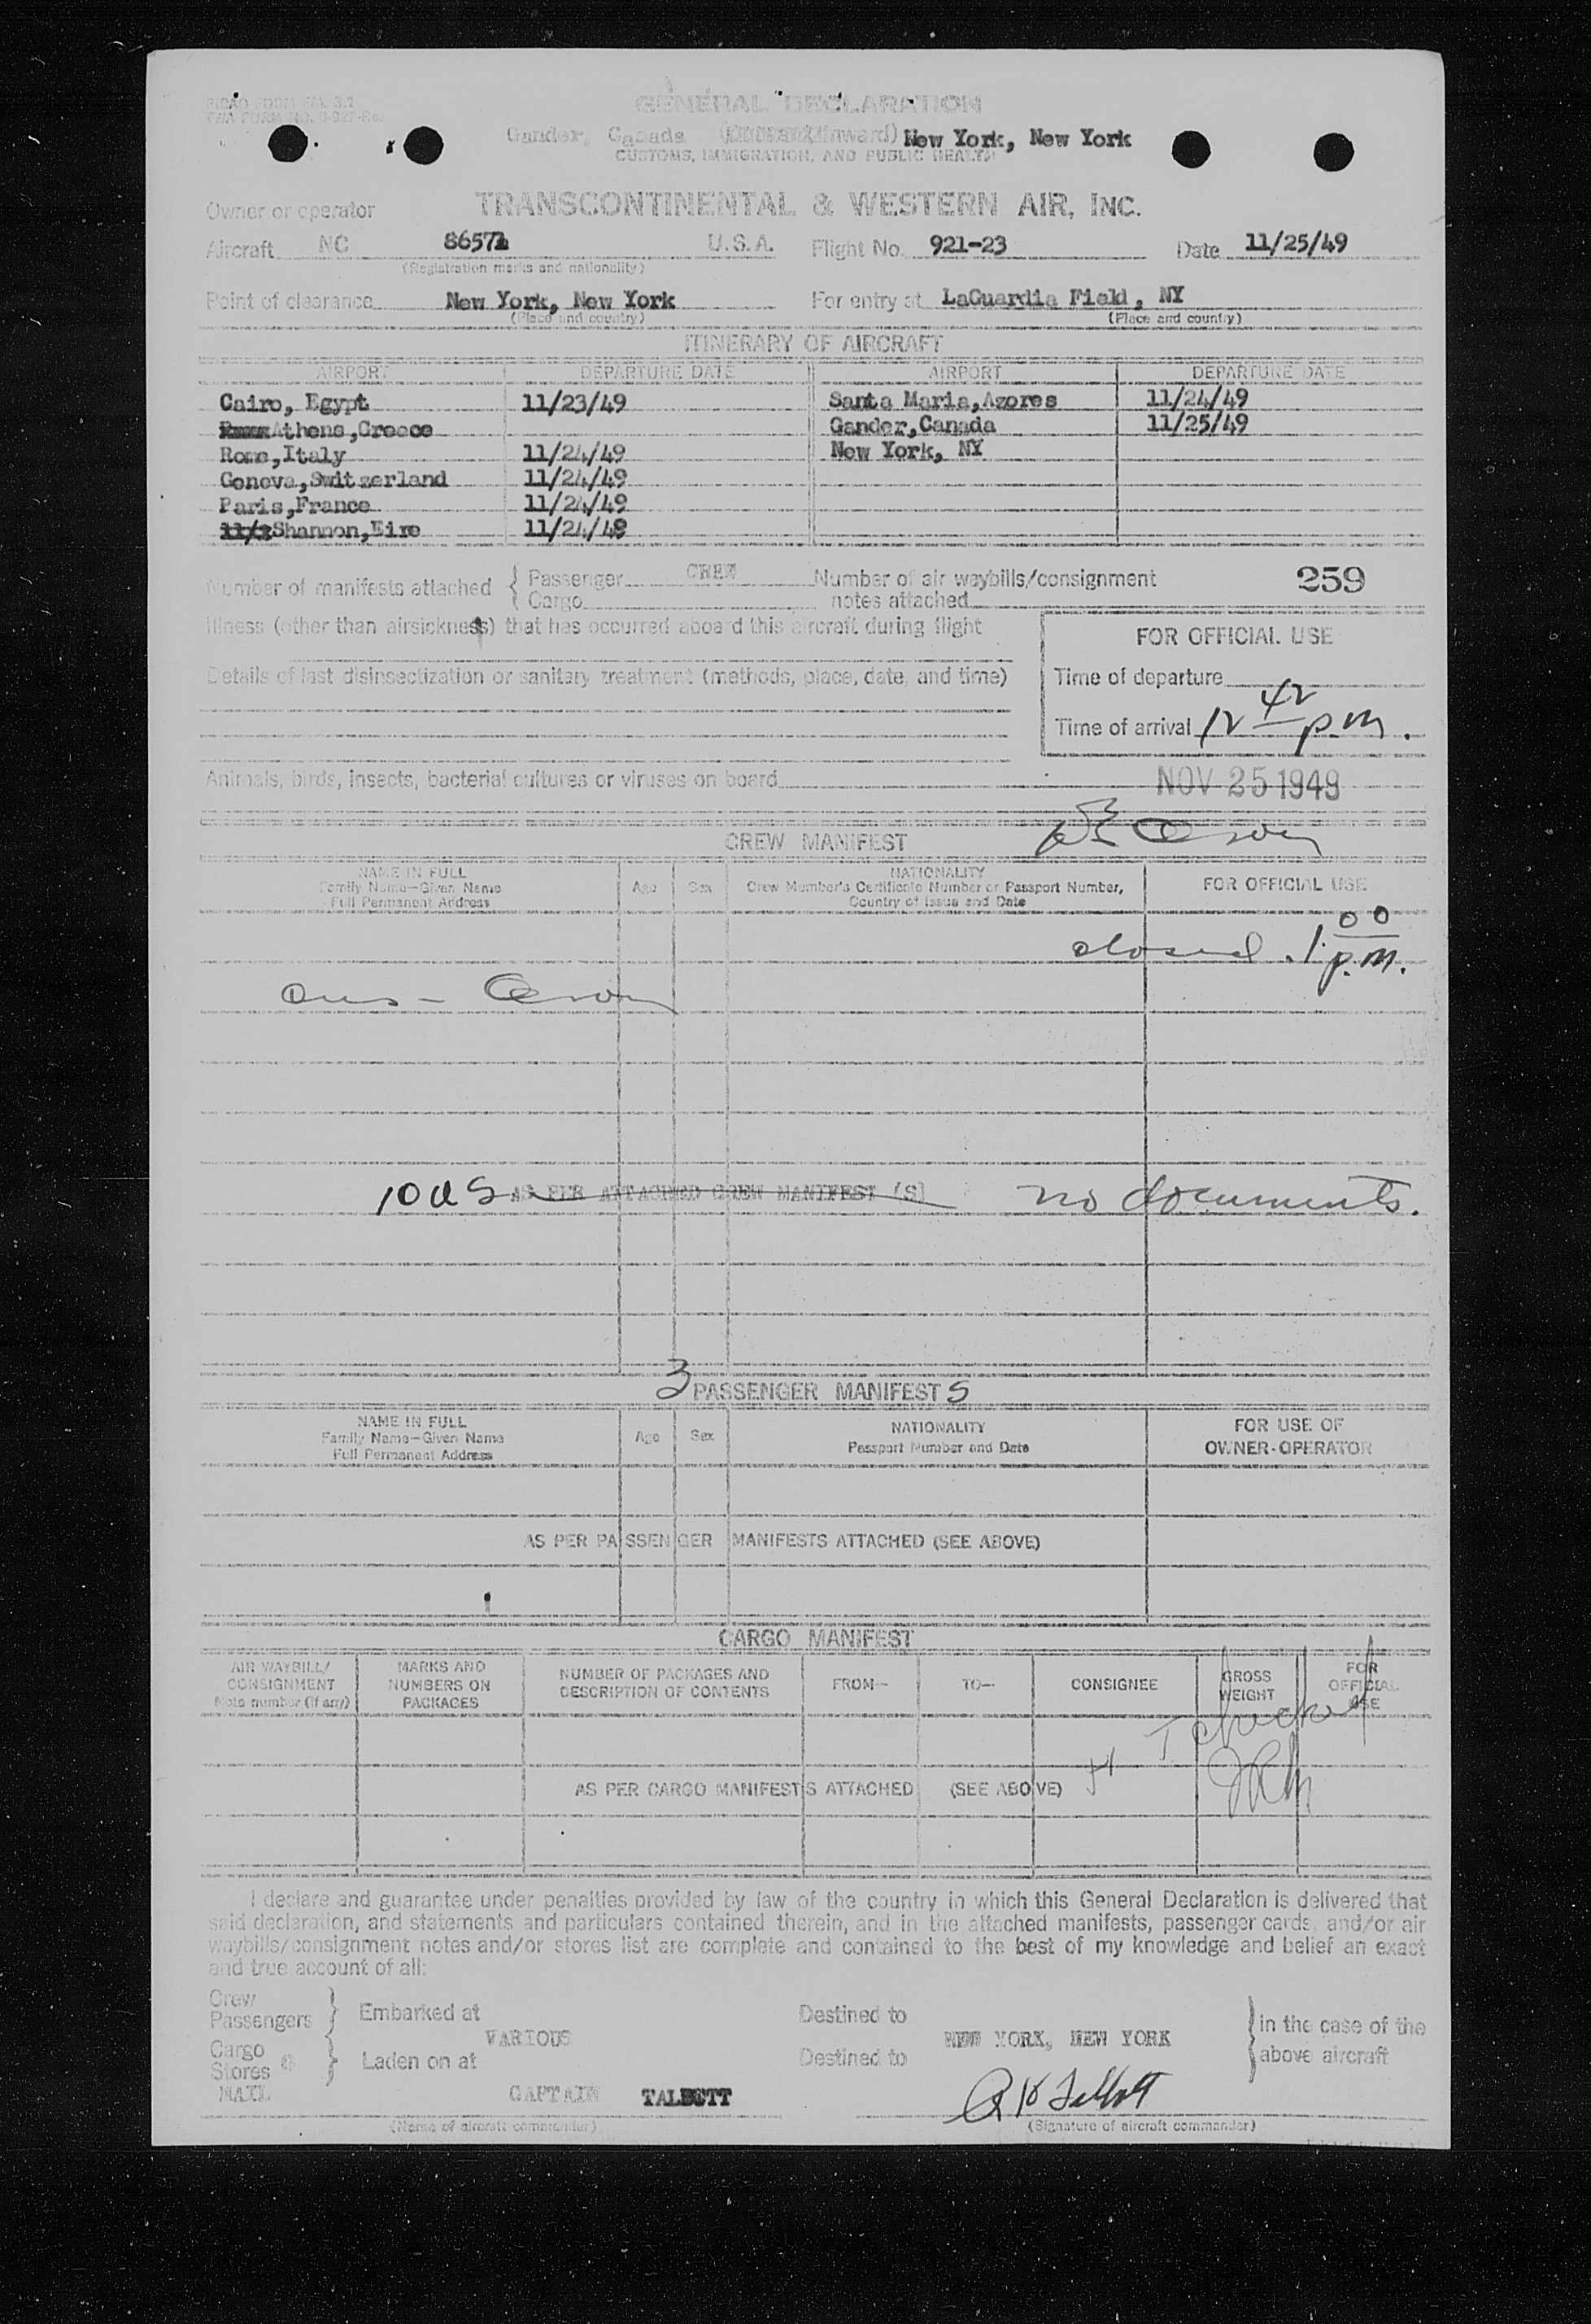 GENERAL DECLARATION
Gander, Canada (Inward) New York, New York
CUSTOMS, IMMIGRATION, AND PUBLIC HEALTH
Owner or operator TRANSCONTINENTAL & WESTERN AIR, INC.
Aircraft NC 86571 U.S.A. Flight No. 921-23 Date 11/25/49
(Registration marks and nationality)
Point of clearance New York, New York For entry at LaGuardia Field, NY
(Place and country) (Place and country)
ITINERARY OF AIRCRAFT
AIRPORT DEPARTURE DATE AIRPORT DEPARTURE DATE
Cairo, Egypt 11/23/49 Santa Maria,Azores 11/24/49
Athens,Greece Gander,Canada 11/25/49
Rome,Italy 11/24/49 New York, NY
Geneva,Switzerland 11/24/49
Paris,France 11/24/49
Shannon,Eire 11/24/48
Number of manifests attached { Passenger CREW Number of air waybills/consignment 259
Cargo notes attached
Illness (other than airsickness) that has occurred aboard this aircraft during flight
FOR OFFICIAL USE
Details of last disinsectization or sanitary treatment (methods, place, date, and time)
Time of departure
Time of arrival 12 42 p.m.
Animals, birds, insects, bacterial cultures or viruses on board
NOV 25 1949
CREW MANIFEST
NAME IN FULL
Family Name—Given Name
Full Permanent Address
Age Sex
NATIONALITY
Crew Member's Certificate Number or Passport Number,
Country of Issue and Date
FOR OFFICIAL USE
closed 1:00 p.m.
10 US AS PER ATTACHED CREW MANIFEST (S) no documents.
3 PASSENGER MANIFEST S
NAME IN FULL
Family Name—Given Name
Full Permanent Address
Age Sex
NATIONALITY
Passport Number and Date
FOR USE OF
OWNER-OPERATOR
AS PER PASSENGER MANIFESTS ATTACHED (SEE ABOVE)
CARGO MANIFEST
AIR WAYBILL/
CONSIGNMENT
Note number (if any)
MARKS AND
NUMBERS ON
PACKAGES
NUMBER OF PACKAGES AND
DESCRIPTION OF CONTENTS
FROM—
TO—
CONSIGNEE
GROSS
WEIGHT
FOR
OFFICIAL
USE
AS PER CARGO MANIFESTS ATTACHED (SEE ABOVE)
I declare and guarantee under penalties provided by law of the country in which this General Declaration is delivered that
said declaration, and statements and particulars contained therein, and in the attached manifests, passenger cards, and/or air
waybills/consignment notes and/or stores list are complete and contained to the best of my knowledge and belief an exact
and true account of all:
Crew
Passengers } Embarked at Destined to } in the case of the
VARIOUS NEW YORK, NEW YORK
Cargo
Stores } Laden on at Destined to above aircraft
MAIL CAPTAIN TALBOTT
(Name of aircraft commander) (Signature of aircraft commander)